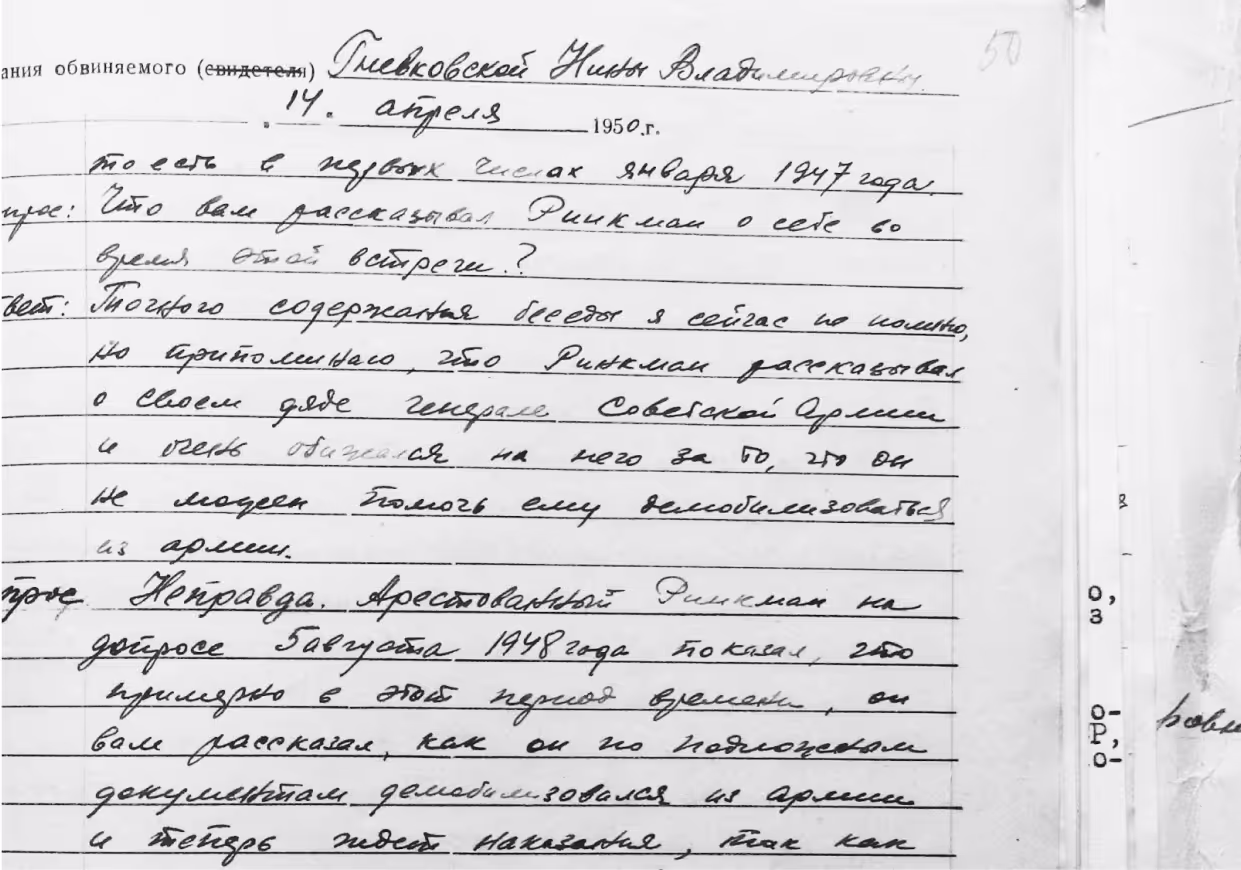 50
ания обвиняемого (свидетеля) Гневковской Нины Владимировны.
14. апреля 1950.г.
то есть в первых числах января 1947 года.
прос: Что вам рассказывал Ринкман о себе во
время этой встречи?
вет: Точного содержания беседы я сейчас не помню,
но припоминаю, что Ринкман рассказывал
о своем дяде генерале Советской Армии
и очень обижался на него за то, что он
не может помочь ему демобилизоваться
из армии.
прос Неправда. Арестованный Ринкман на
допросе 5 августа 1948 года показал, что
примерно в этот период времени, он
вам рассказал, как он по подложным
документам демобилизовался из армии
и теперь ждет наказания, так как
в
о,
з
о-
Р,
о-